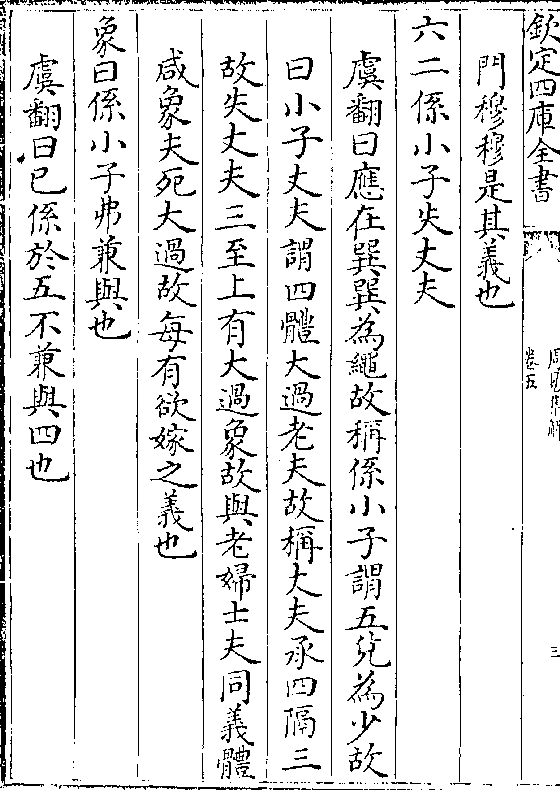 欽定四庫全書
周易集解
卷五
三
門穆穆是其義也
六二係小子失丈夫
虞翻曰應在巽巽為繩故稱係小子謂五兊為少故
曰小子丈夫謂四體大過老夫故稱丈夫承四隔三
故失丈夫三至上有大過象故與老婦士夫同義體
咸象夫死大過故每有欲嫁之義也
象曰係小子弗兼與也
虞翻曰已係於五不兼與四也